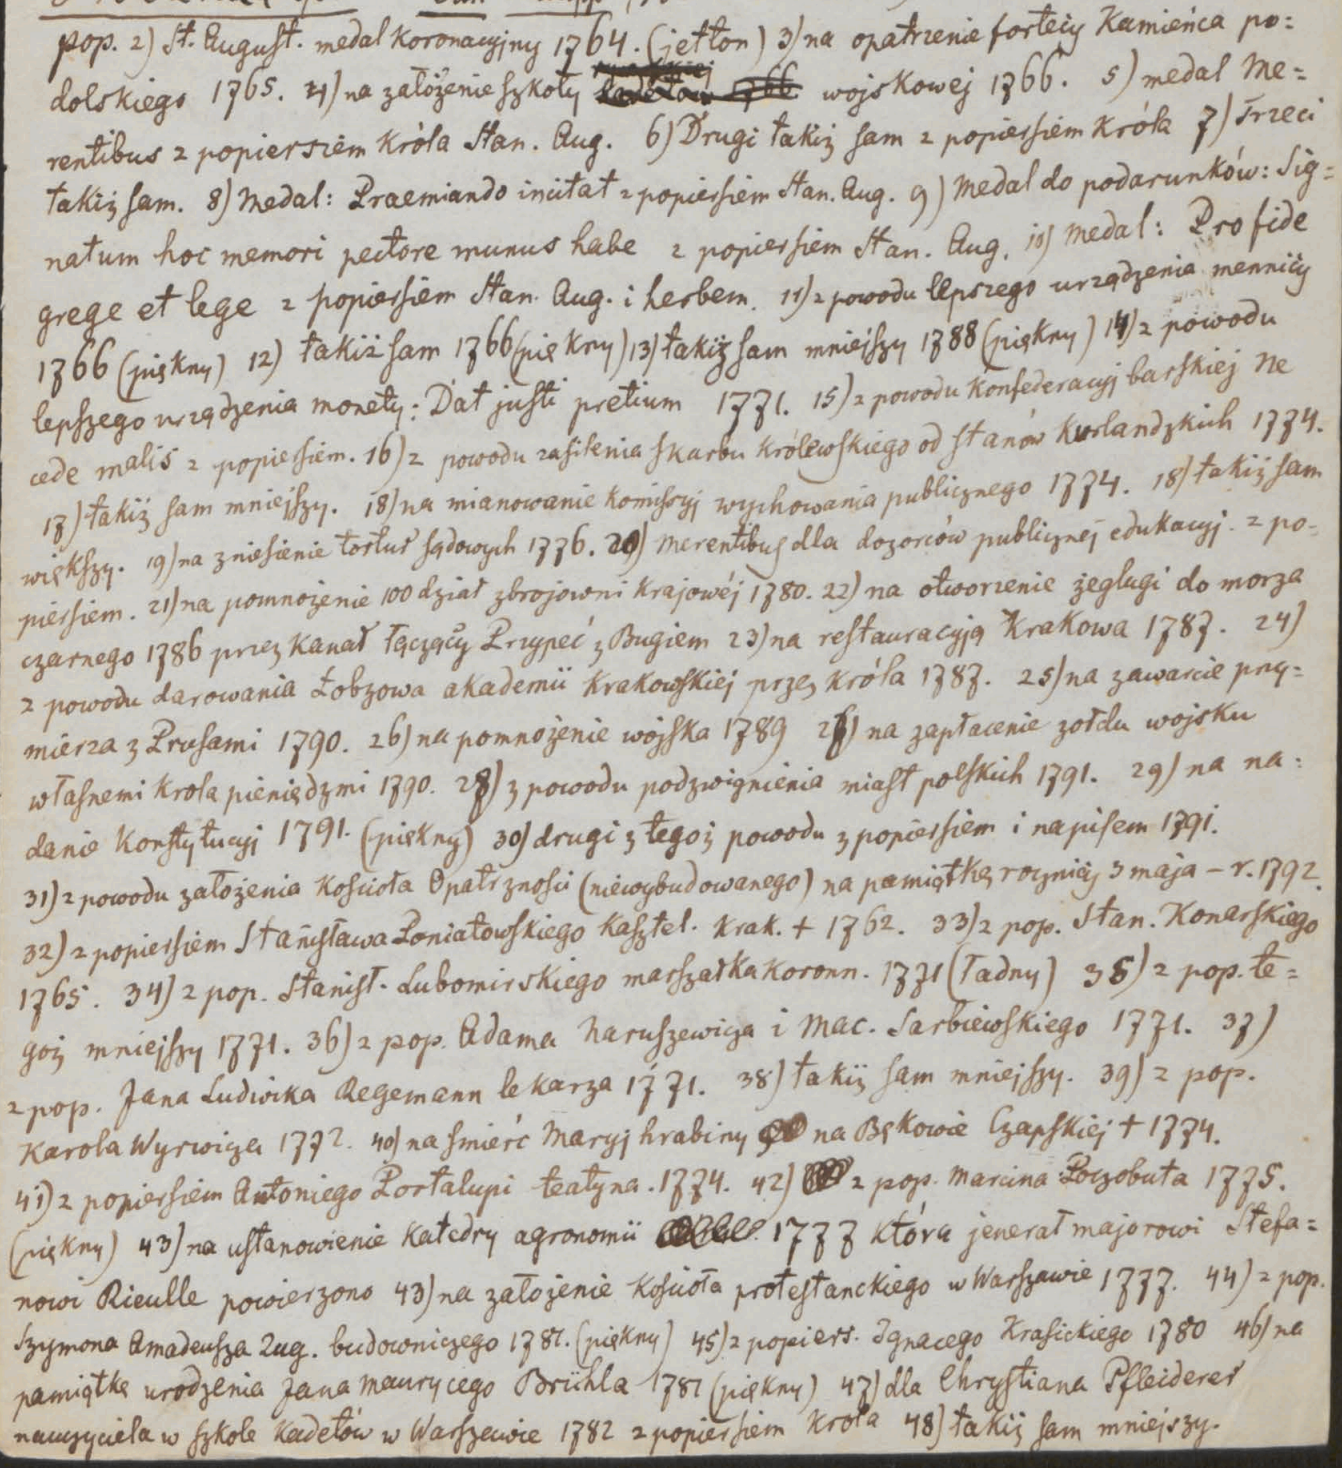 pop. 2) St. August. medal koronacyjny 1764. (jetton) 3) na opatrzenie fortecy Kamieńca po=
dolskiego 1765. 4) na założenie szkoły wojskowej 1766. 5) medal Me=
rentibus z popiersiem króla Stan. Aug. 6) Drugi takiż sam z popiersiem króla 7) Trzeci
takiż sam. 8) Medal: Praemiando incitat z popiersiem Stan. Aug. 9) Medal do podarunków: Sig=
natum hoc memori pectore munus habe z popiersiem Stan. Aug. 10) Medal: Pro fide
grege et lege z popiersiem Stan. Aug. i herbem. 11) z powodu lepszego urządzenia mennicy
1766 (piękny) 12) takiż sam 1766 (piękny) 13) takiż sam mniejszy 1788 (piękny) 14) z powodu
lepszego urządzenia monety: Dat justi pretium 1771. 15) z powodu Konfederacyj barskiej Ne
cede malis z popiersiem. 16) z powodu zasilenia skarbu królewskiego od stanów Kurlandzkich 1774.
17) takiż sam mniejszy. 18) na mianowanie komissyj wychowania publicznego 1774. 18) takiż sam
większy. 19) na zniesienie tortur sądowych 1776. 20) Merentibus dla dozorców publicznej edukacyj. z po-
piersiem. 21) na pomnożenie 100 dział zbrojowni krajowéj 1780. 22) na otworzenie żeglugi do morza
czarnego 1786 przez kanał łączący Przypeć z Bugiem 23) na restauracyją Krakowa 1787. 24)
z powodu darowania Łobzowa akademii krakowskiej przez króla 1787. 25) na zawarcie przy=
mierza z Prusami 1790. 26) na pomnożenie wojska 1789 27) na zapłacenie zołdu wojsku
własnemi krola pieniędzmi 1790. 28) z powodu podzwignienia miast polskich 1791. 29) na na=
danie Konstytucyj 1791. (piękny) 30) drugi z tegoż powodu z popiersiem i napisem 1791.
31) z powodu założenia kościoła Opatrzności (niewybudowanego) na pamiątkę rocznicy 3 maja – r. 1792.
32) z popiersiem Stanisława Poniatowskiego Kasztel. Krak. + 1762. 33) z pop. Stan. Konarskiego
1765. 34) z pop. Stanisł. Lubomirskiego marszałka koronn. 1771 (ładny) 35) z pop. te=
goż mniejszy 1771. 36) z pop. Adama Naruszewicza i Mac. Sarbiewskiego 1771. 37)
z pop. Jana Ludwika Regemann lekarza 1771. 38) takiż sam mniejszy. 39) z pop.
Karola Wyrwicza 1772. 40) na smierć Maryj hrabiny na Bękowie Czapskiej + 1774.
41) z popiersiem Antoniego Portalupi teatyna. 1774. 42) z pop. Marcina Poczobuta 1775.
(piękny) 43) na ustanowienie katedry agronomii 1777 która jenerał majorowi Stefa=
nowi Rieulle powierzono 43) na założenie kościoła protestanckiego w Warszawie 1777. 44) z pop.
Szymona Amadeusza Zug. budowniczego 1781. (piękny) 45) z popiers. Ignacego Krasickiego 1780 46) na
pamiątkę urodzenia Jana Maurycego Brühla 1781 (piękny) 47) dla Chrystiana Pfleiderer
nauczyciela w szkole kadetów w Warszawie 1782 z popiersiem króla 48) takiż sam mniejszy.